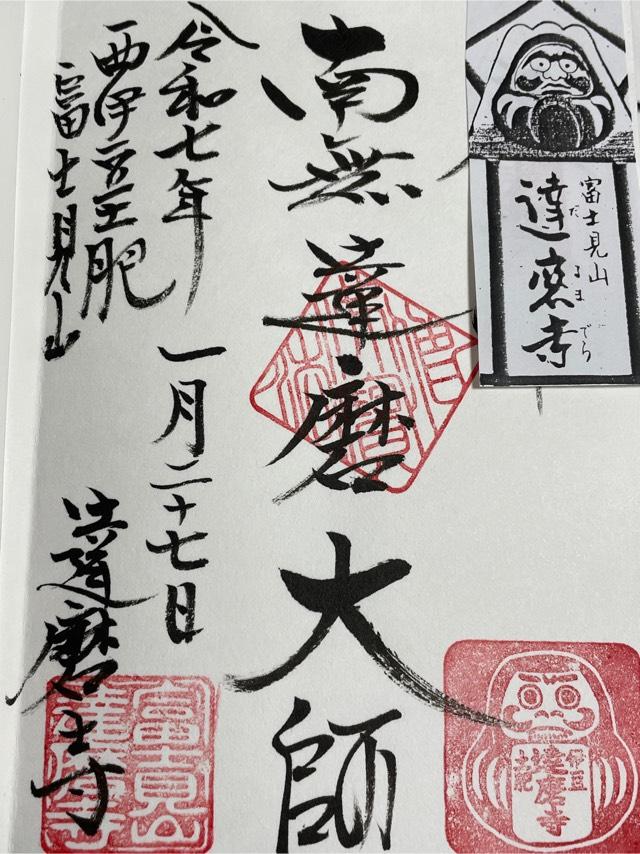 富士見山
達磨寺
だるまでら
南無達磨大師
令和七年一月二十七日
西伊豆土肥
富士見山
達磨寺
富士見山
達磨寺
伊豆
達磨寺
土肥